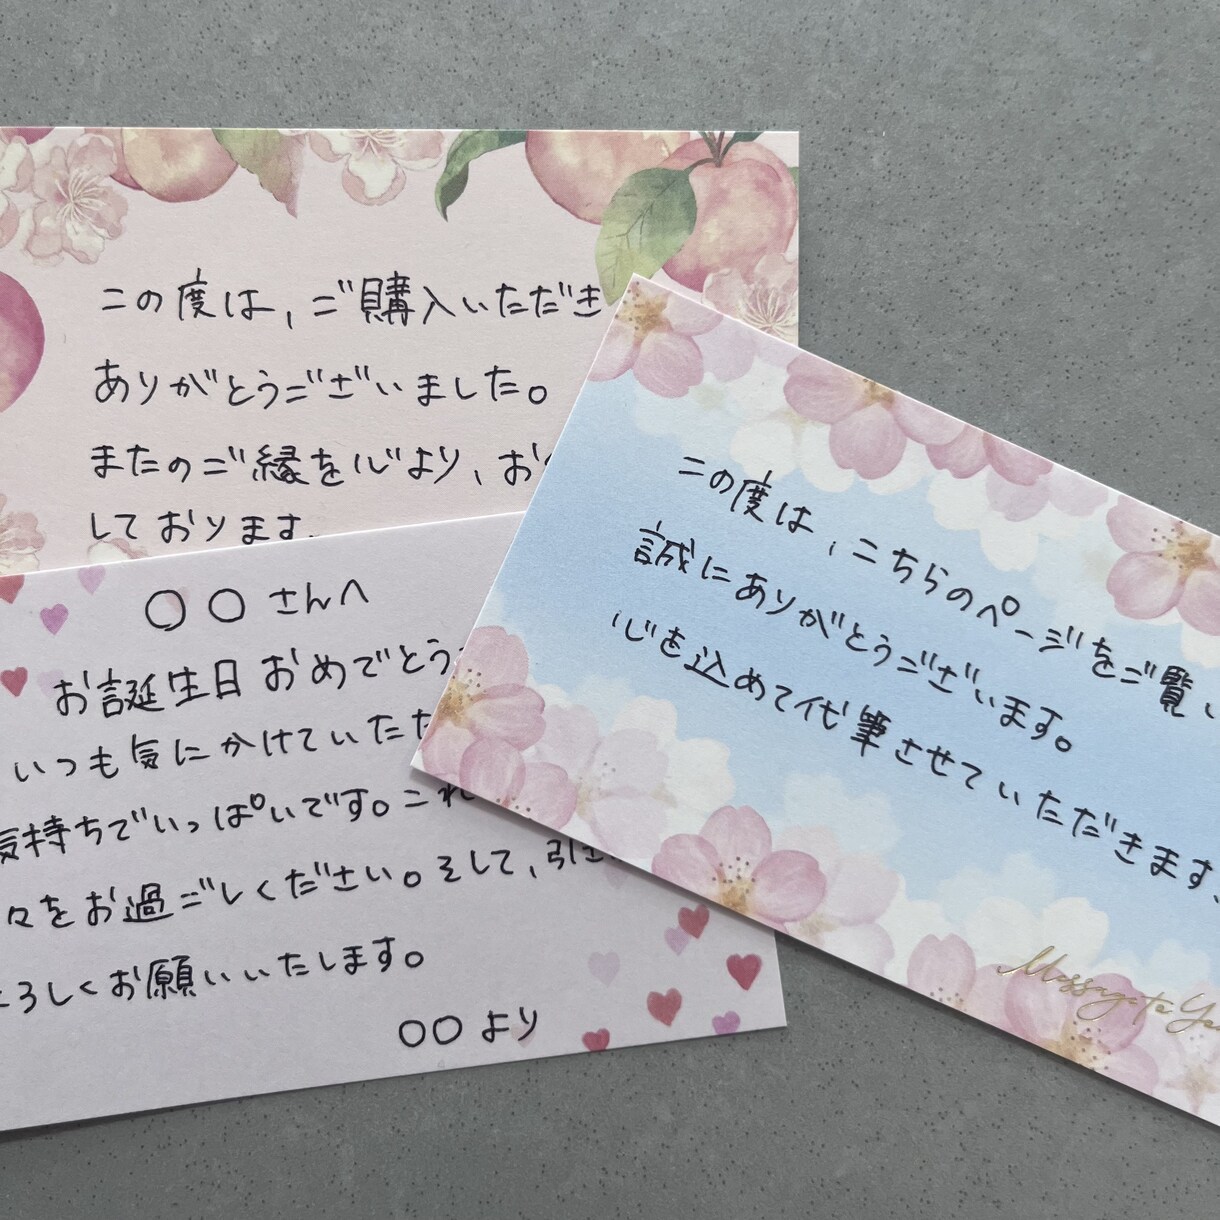 この度は、ご購入いただき
ありがとうございました。
またのご縁を心より、お
しております。
○○さんへ
お誕生日おめでとう
いつも気にかけていただ
気持ちでいっぱいです。これ
々をお過ごしください。そして、引き
ろしくお願いいたします。
○○より
この度は、こちらのページをご覧い
誠にありがとうございます。
心を込めて代筆させていただきます。
Message to Yo